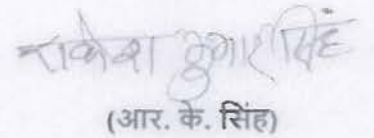 राकेश कुमार सिंह
(आर. के. सिंह)